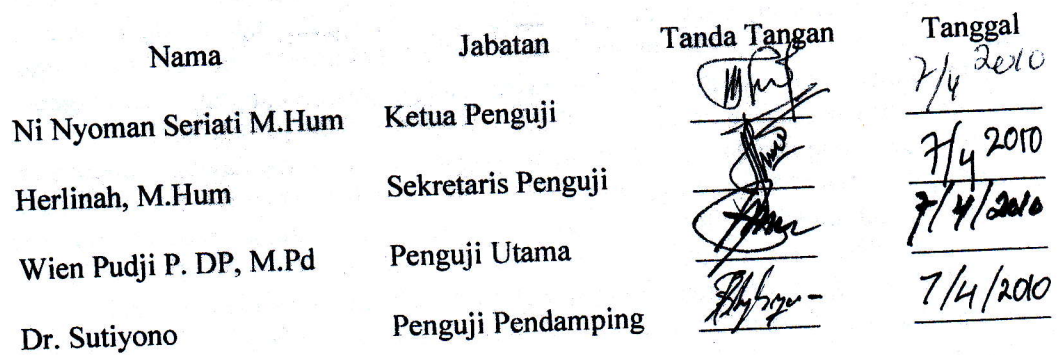 Nama Jabatan Tanda Tangan Tanggal
Ni Nyoman Seriati M.Hum Ketua Penguji 7/4 2010
Herlinah, M.Hum Sekretaris Penguji 7/4 2010
Wien Pudji P. DP, M.Pd Penguji Utama 7/4/2010
Dr. Sutiyono Penguji Pendamping 7/4/2010